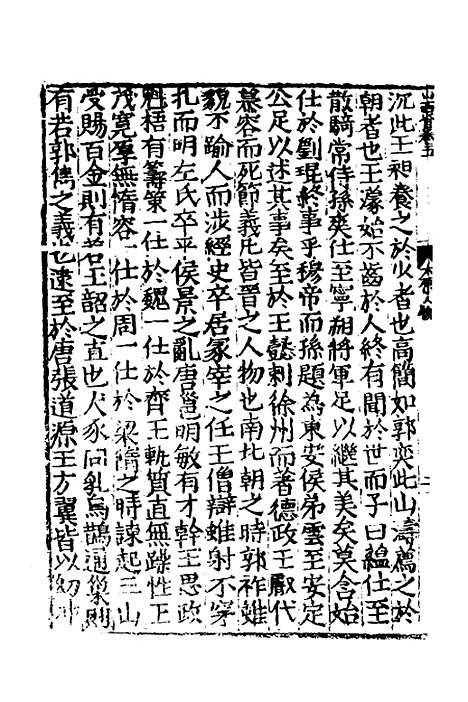 沉此王昶養之於少者也高簡如郭奕此山濤薦之於
朝者也王濛始不齒於人終有聞於世而子曰蘊仕至
散騎常侍孫爽仕至寧朔將軍足以繼其美矣莫含始
仕於劉琨終事乎穆帝而孫題為東安侯弟雲至安定
公足以述其事矣至於王懿刺徐州而著德政王嚴代
慕容而死節義凡皆晋之人物也南北朝之時郭祚雖
貌不踰人而涉經史卒居冢宰之任王僧辯雖射不穿
札而明左氏卒平侯景之亂唐邕明敏有才幹王思政
魁梧有籌策一仕於魏一仕於齊王軌質直無躁性王
茂寬厚無惰容一仕於周一仕於梁隋之時諫起三山
受賜百金則有若王韶之直也犬豕同乳烏鵲通巢則
有若郭雋之義也逮至於唐張道源王方翼皆以幼沖